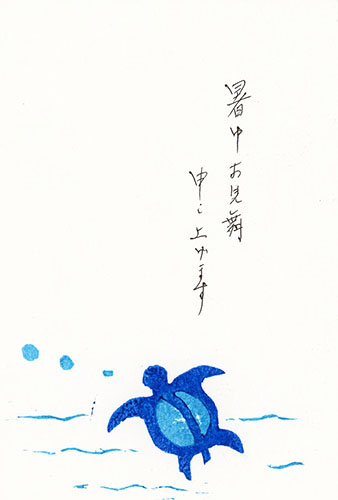 暑中お見舞
申し上げます